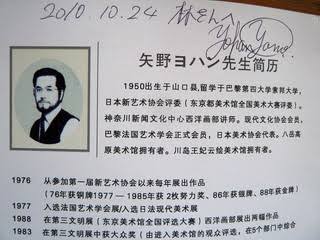 2010.10.24 林さんへ
矢野ヨハン先生简历
1950出生于山口县,留学于巴黎第四大学索邦大,
日本新艺术协会评委（东京都美术馆全国美术大赛评委）。
神奈川新闻文化中心西洋画部讲师。现代文化协会会员,
巴黎法国艺术学会正式会员，日本美术协会代表。八岳高
原美术馆拥有者。川岛王妃云绘美术馆拥有者。
1976 从参加第一届新艺术协会以来每年展出作品
（76年获铜牌1977—1985年获2枚努力奖、86年获银牌、88年获金牌）
1977 入选法国艺术学会展/入选日法现代美术展
1988 在第三文明展（东京都美术馆全国评选大赛）西洋画部展出两幅作品
1983 在第三文明展中获大众奖（由进入美术馆的观众评选，在5个部门中综合